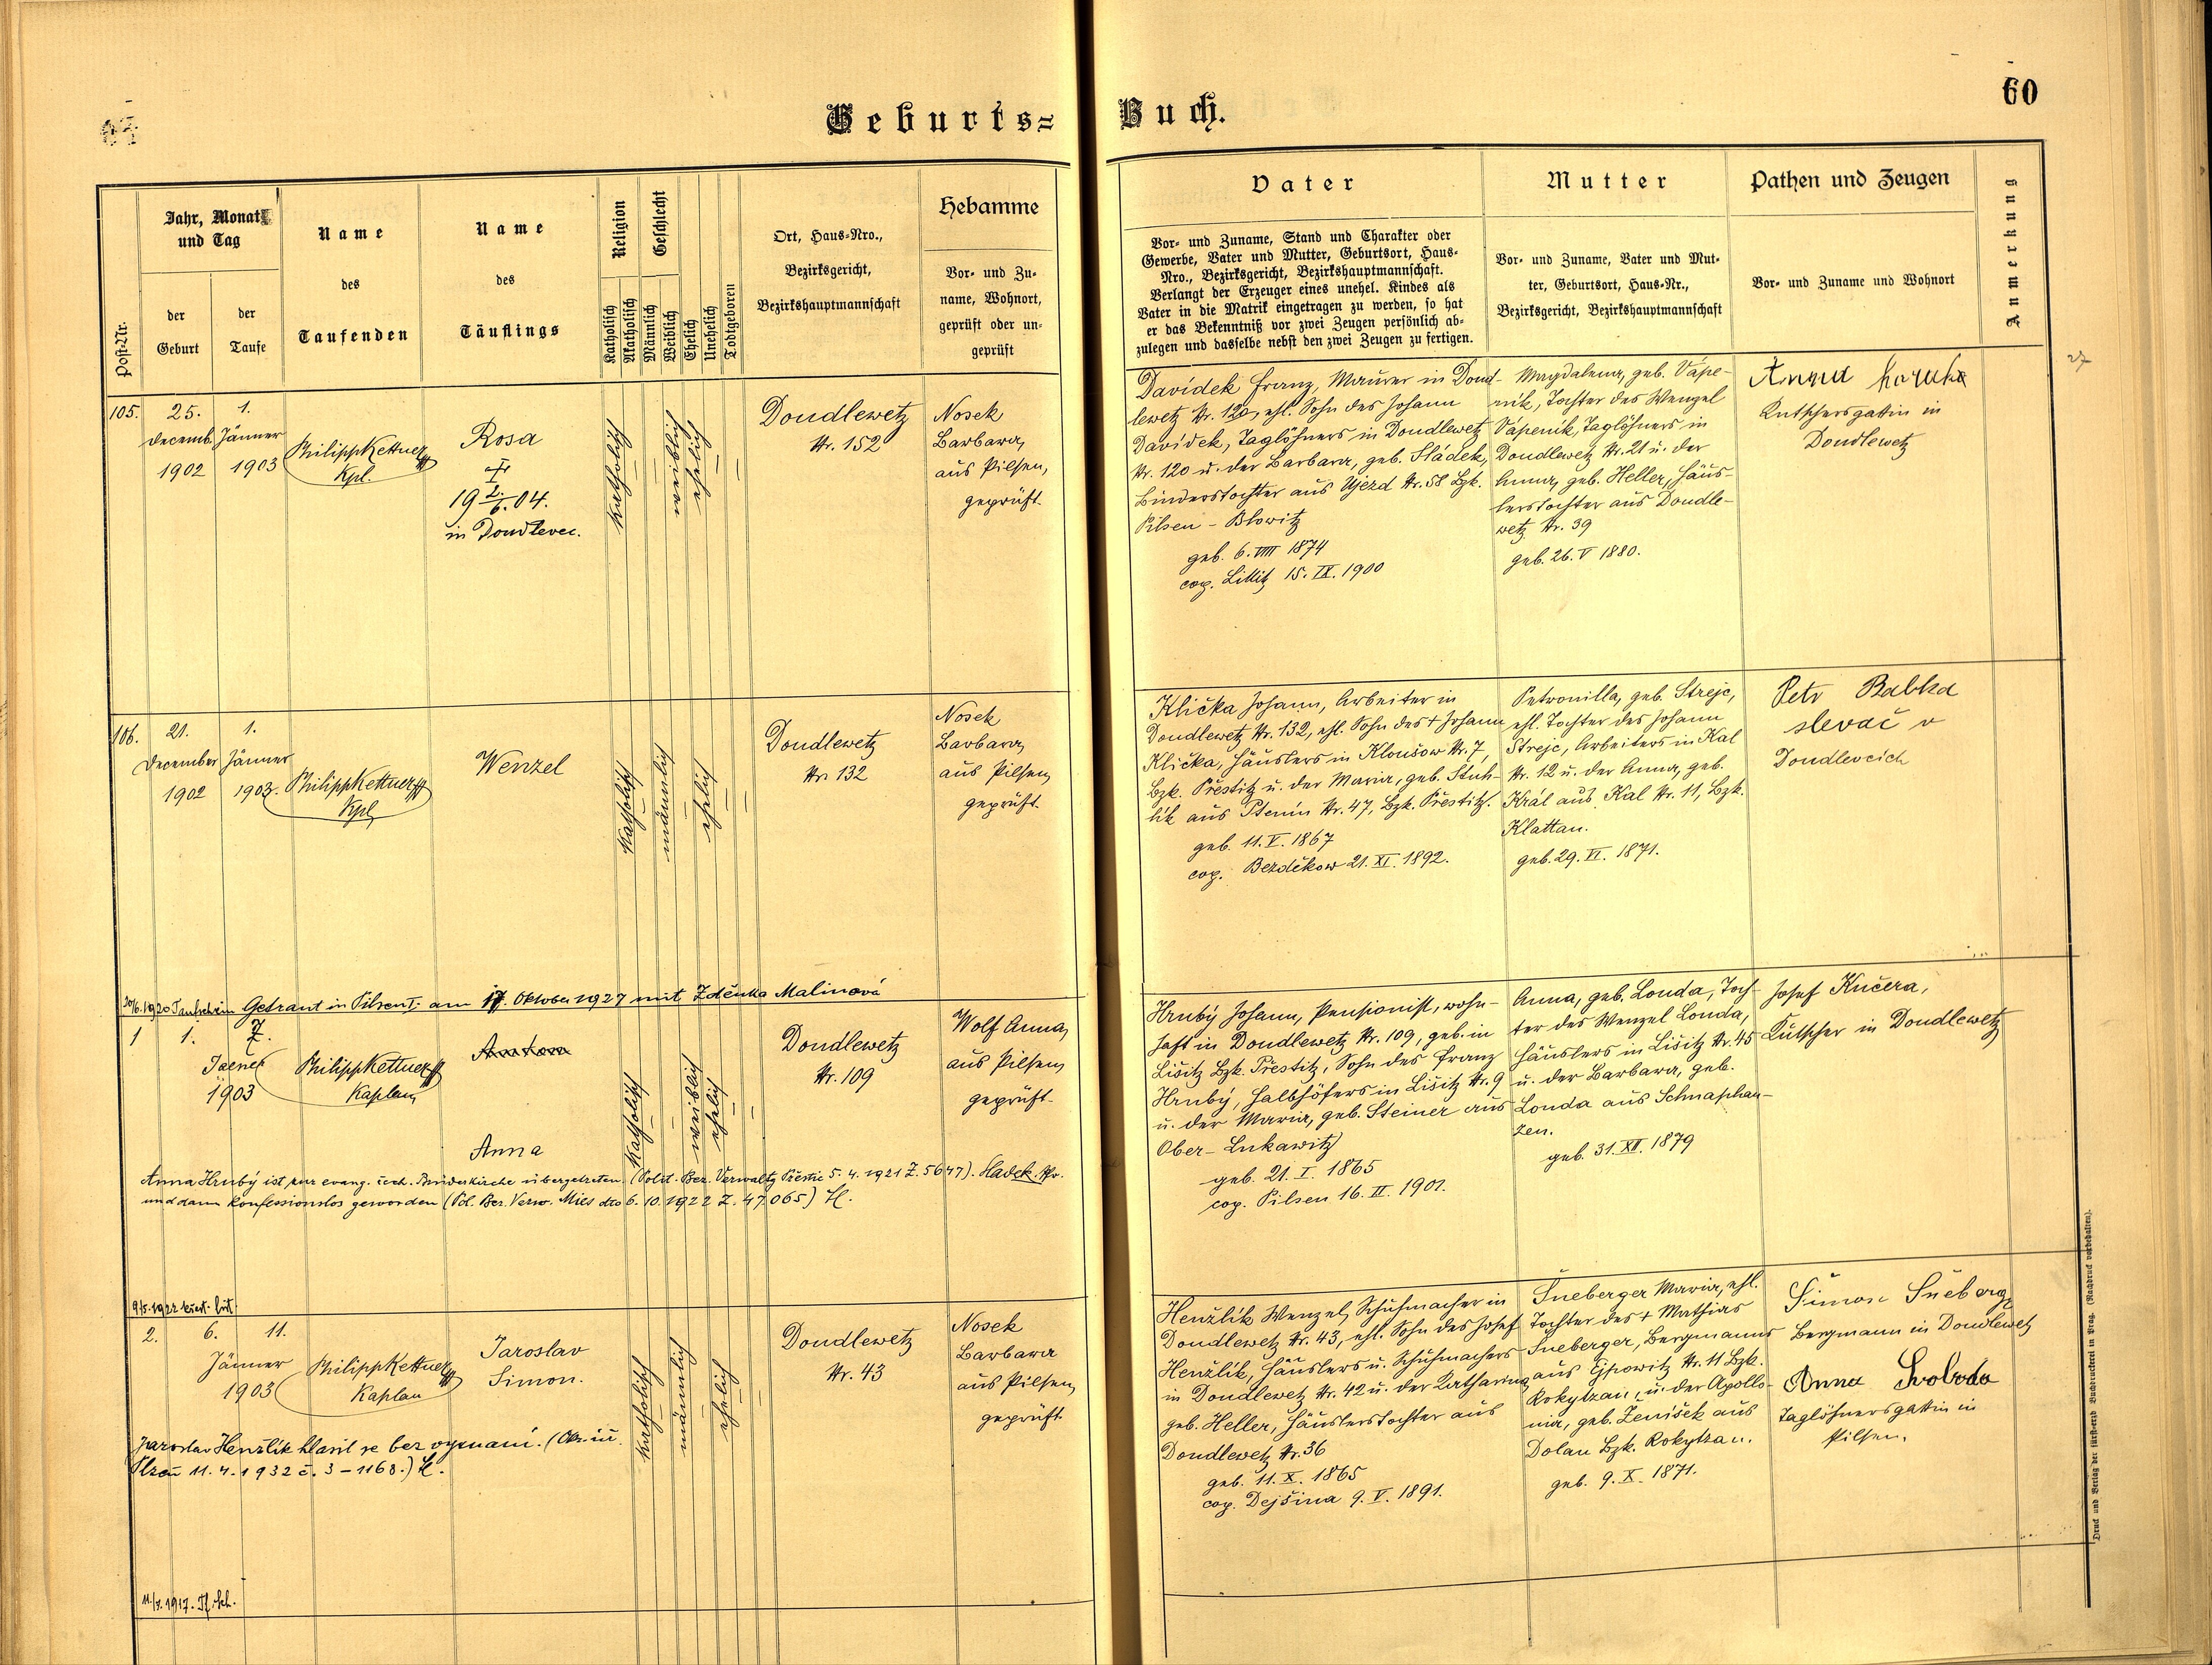 Geburts=
Buch.
60
Post-Nr.
Jahr, Monat
und Tag
der
Geburt
der
Taufe
Name
des
Taufenden
Name
des
Täuflings
Religion
Katholisch
Akatholisch
Geschlecht
Männlich
Weiblich
Ehelich
Unehelich
Todtgeboren
Ort, Haus-Nro.,
Bezirksgericht,
Bezirkshauptmannschaft
Hebamme
Vor- und Zu-
name, Wohnort,
geprüft oder un-
geprüft
Vater
Vor- und Zuname, Stand und Charakter oder
Gewerbe, Vater und Mutter, Geburtsort, Haus-
Nro., Bezirksgericht, Bezirkshauptmannschaft.
Verlangt der Erzeuger eines unehel. Kindes als
Vater in die Matrik eingetragen zu werden, so hat
er das Bekenntniß vor zwei Zeugen persönlich ab-
zulegen und dasselbe nebst den zwei Zeugen zu fertigen.
Mutter
Vor- und Zuname, Vater und Mut-
ter, Geburtsort, Haus-Nr.,
Bezirksgericht, Bezirkshauptmannschaft
Pathen und Zeugen
Vor- und Zuname und Wohnort
Anmerkung
27
105.
25.
Decemb.
1902
1.
Jänner
1903
Philipp Kettner
Kpl.
Rosa
†
19 2./6. 04.
in Doudlevec.
katholisch
weiblich
ehelich
Doudlewetz
Nr. 152
Nosek
Barbara,
aus Pilsen,
geprüft.
Davídek Franz, Maurer in Doud-
lewetz Nr. 120, ehl. Sohn des Johann
Davídek, Taglöhners in Doudlewetz
Nr. 120 u. der Barbara, geb. Sládek,
Binderstochter aus Ujezd Nr. 58 Bzk.
Pilsen - Blowitz
geb. 6. VIII 1874
cop. Littitz 15. IX. 1900
Magdalena, geb. Vápe-
ník, Tochter des Wenzel
Vápeník, Taglöhners in
Doudlewetz Nr. 21 u. der
Anna, geb. Heller, Häus-
lerstochter aus Doudle-
wetz Nr. 39
geb. 26. V 1880.
Anna
Kutschersgattin in
Doudlewetz
106.
21.
December
1902
1.
Jänner
1903.
Philipp Kettner
Kpl.
Wenzel
katholisch
männlich
ehelich
Doudlewetz
Nr. 132
Nosek
Barbara,
aus Pilsen,
geprüft.
Klička Johann, Arbeiter in
Doudlewetz Nr. 132, ehl. Sohn des † Johann
Klička, Häuslers in Kloušow Nr. 7,
Bzk. Přestitz u. der Maria, geb. Stuh-
lík aus Ptenín Nr. 47, Bzk. Přestitz.
geb. 11. V. 1867
cop. Bezděkow 21. XI. 1892.
Petronilla, geb. Strejc,
ehl. Tochter des Johann
Strejc, Arbeiters in Kal
Nr. 12 u. der Anna, geb.
Král aus Kal Nr. 11, Bzk.
Klattau.
geb. 29. VI. 1871.
Petr Babka
slevač v
Doudlevcích
30/6. 1920 Taufschein Getraut in Pilsen I. am 17. Oktober 1927 mit Zděnka Malinová
1
1.
7.
Jäner
1903
Philipp Kettner
Kaplan
Anton
Anna
katholisch
weiblich
ehelich
Doudlewetz
Nr. 109
Wolf Anna,
aus Pilsen,
geprüft.
Hrubý Johann, Pensionist, wohn-
haft in Doudlewetz Nr. 109, geb. in
Lišitz Bzk. Přestitz, Sohn des Franz
Hrubý, Halbhöfers in Lišitz Nr. 9
u. der Maria, geb. Steiner aus
Ober-Lukawitz
geb. 21. I. 1865
cop. Pilsen 16. II. 1901.
Anna, geb. Louda, Toch-
ter des Wenzel Louda,
Häuslers in Lišitz Nr. 45
u. der Barbara, geb.
Louda aus Schnaphau-
zen.
geb. 31. XII. 1879
Josef Kučera,
Kutscher in Doudlewetz
Anna Hrubý ist zur evang. čech. Brüderkirche übergetreten. (Polit. Bez. Verwaltg Přeštic 5. 4. 1921 Z. 5647). Hadek Pfr.
und dann konfessionslos geworden (Pol. Bez. Verw. Mies dto 6. 10. 1922 Z. 47.065) H.
9/5. 1922 křest. list
2.
6.
Jänner
1903
11.
Philipp Kettner
Kaplan
Jaroslav
Simon.
katholisch
männlich
ehelich
Doudlewetz
Nr. 43
Nosek
Barbara
aus Pilsen,
geprüft.
Henžlík Wenzel, Schuhmacher in
Doudlewetz Nr. 43, ehl. Sohn des Josef
Henžlík, Häuslers u. Schuhmachers
in Doudlewetz Nr. 42 u. der Katharina
geb. Heller, Häuslerstochter aus
Doudlewetz Nr. 36
geb. 11. X. 1865
cop. Dejšina 9. V. 1891.
Šneberger Maria, ehl.
Tochter des † Mathias
Šneberger, Bergmanns
aus Ejpowitz Nr. 11 Bzk.
Rokytzan, u. der Apollo-
nia, geb. Ženíšek aus
Dolan Bzk. Rokytzan.
geb. 9. X. 1871.
Šimon Šneberg
Bergmann in Doudlewetz
Anna Svoboda
Taglöhnersgattin in
Pilsen.
Jaroslav Henžlík hlásil se bez vyznání. (Okr. úř.
Plzeň 11. 4. 1932 č. 3-1168.) H.
Druck und Verlag der fürsterzb. Buchdruckerei in Prag. (Nachdruck vorbehalten).